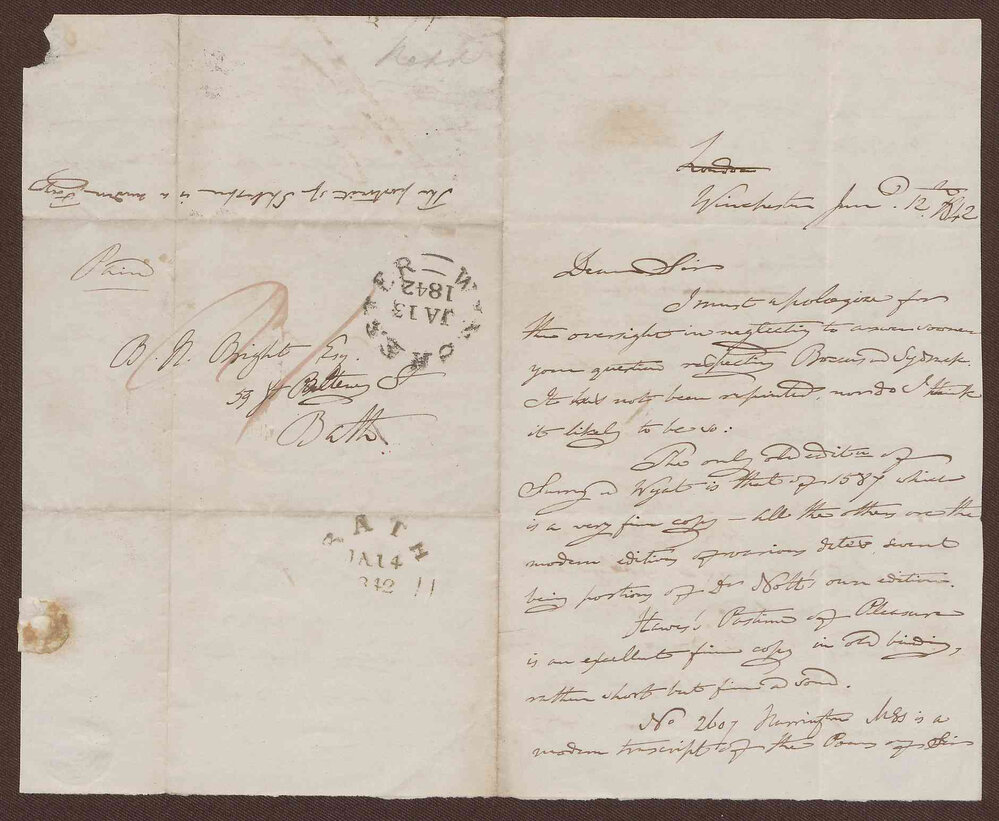 The portrait of Shakespeare is a modern Forgery
Paid
B. H. Bright Esq.
59 Pulteney St
Bath
WINCHESTER
JA 13
1842
BATH
JA 14
1842
London
Winchester Jany. 12th 1842
Dear Sir
I must apologize for
the oversight in neglecting to answer sooner
your question respecting Brocas &
It has not been reprinted, nor do I think
it likely to be so:
The only old edition of
Surrey & Wyat is that of 1587 which
is a very fine copy – all the others are the
modern editions of various dates, several
being portions of Dr Nott's own edition.
Hawes's Pastime of Pleasure
is an excellent fine copy in old binding,
rather short but fine & sound.
No 2607 Harrington MSS is a
modern transcript of the Poems of Sir